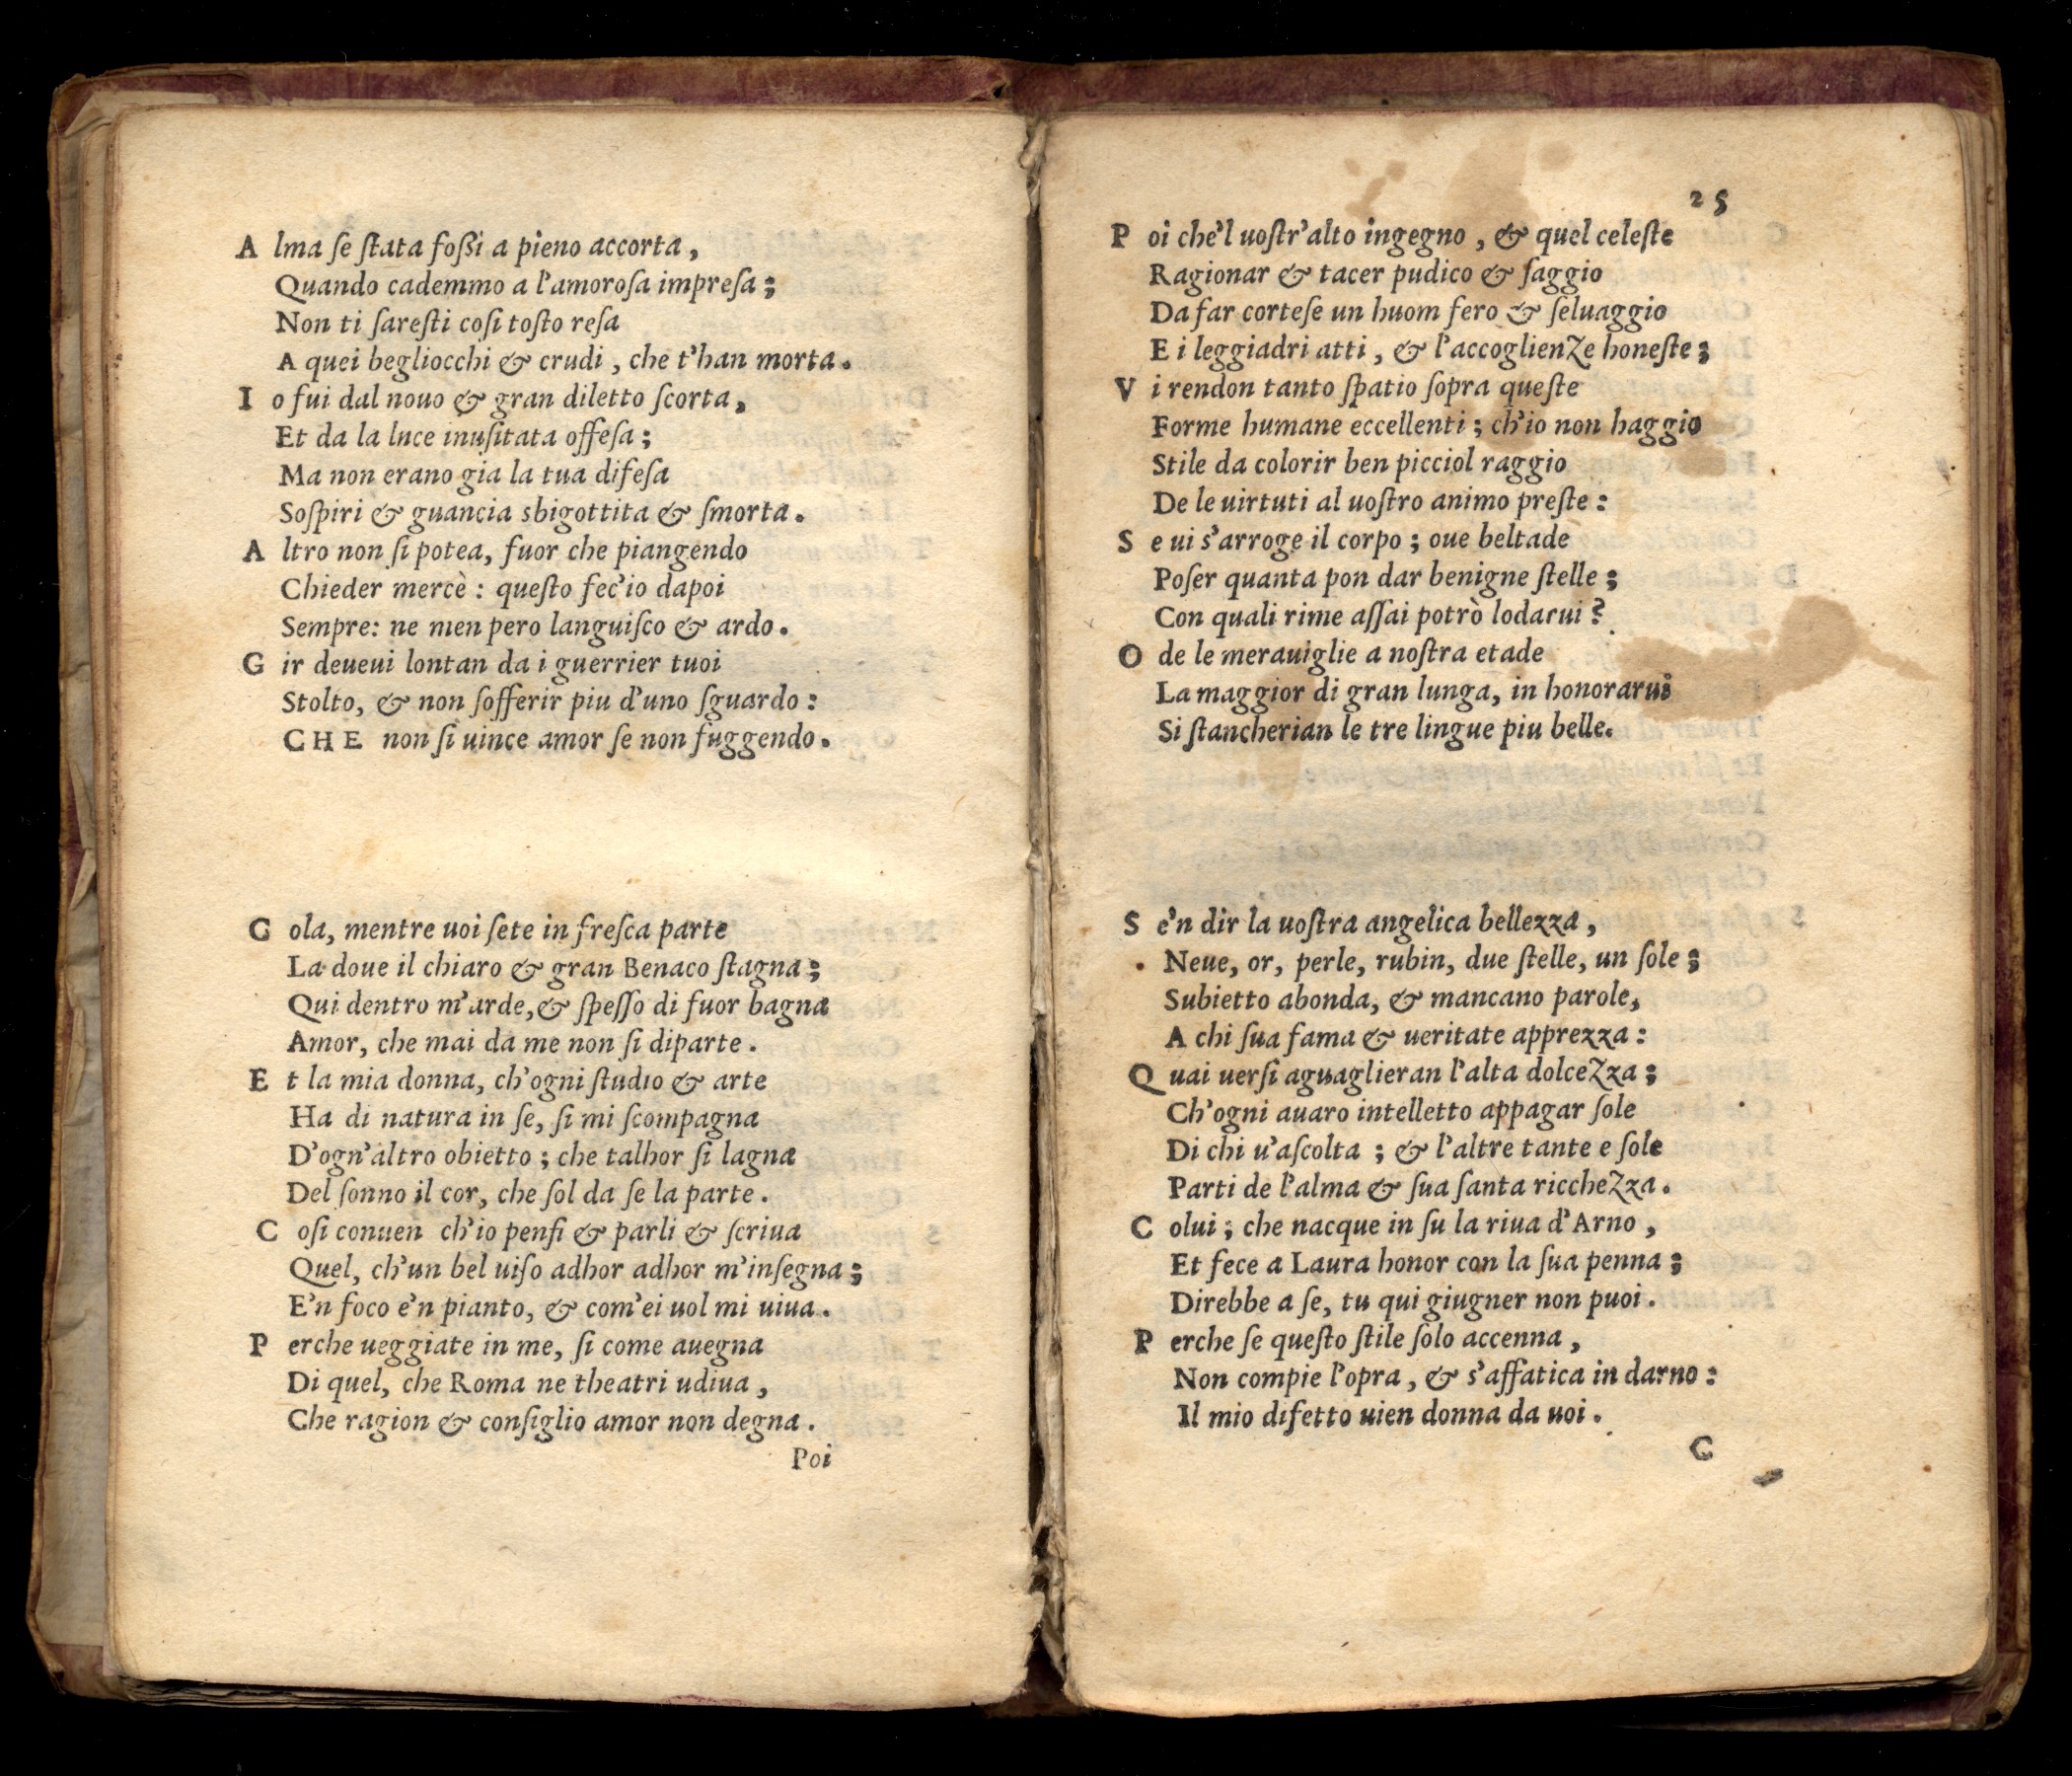 A lma ſe ſtata foßi a pieno accorta,
Quando cademmo a l'amoroſa impreſa;
Non ti ſareſti coſi toſto reſa
A quei begliocchi & crudi, che t'han morta.
I o fui dal nouo & gran diletto ſcorta,
Et da la luce inuſitata offeſa;
Ma non erano gia la tua difeſa
Soſpiri & guancia sbigottita & ſmorta.
A ltro non ſi potea, fuor che piangendo
Chieder mercè: queſto fec'io dapoi
Sempre: ne men pero languiſco & ardo.
G ir deueui lontan da i guerrier tuoi
Stolto, & non ſofferir piu d'uno ſguardo:
CHE non ſi uince amor ſe non fuggendo.
C ola, mentre uoi ſete in freſca parte
La doue il chiaro & gran Benaco ſtagna;
Qui dentro m'arde, & ſpeſſo di fuor bagna
Amor, che mai da me non ſi diparte.
E t la mia donna, ch'ogni ſtudio & arte
Ha di natura in ſe, ſi mi ſcompagna
D'ogn'altro obietto; che talhor ſi lagna
Del ſonno il cor, che ſol da ſe la parte.
C oſi conuen ch'io penſi & parli & ſcriua
Quel, ch'un bel uiſo adhor adhor m'inſegna;
E'n foco e'n pianto, & com'ei uol mi uiua.
P erche ueggiate in me, ſi come auegna
Di quel, che Roma ne theatri udiua,
Che ragion & conſiglio amor non degna.
Poi
25
P oi che'l uoſtr'alto ingegno, & quel celeſte
Ragionar & tacer pudico & ſaggio
Da far corteſe un huom fero & ſeluaggio
E i leggiadri atti, & l'accoglienze honeſte;
V i rendon tanto ſpatio ſopra queſte
Forme humane eccellenti; ch'io non haggio
Stile da colorir ben picciol raggio
De le uirtuti al uoſtro animo preſte:
S e ui s'arroge il corpo; oue beltade
Poſer quanta pon dar benigne ſtelle;
Con quali rime aſſai potrò lodarui?
O de le merauiglie a noſtra etade
La maggior di gran lunga, in honorarui
Si ſtancherian le tre lingue piu belle.
S e'n dir la uoſtra angelica bellezza,
Neue, or, perle, rubin, due ſtelle, un ſole;
Subietto abonda, & mancano parole,
A chi ſua fama & ueritate apprezza:
Q uai uerſi aguaglieran l'alta dolcezza;
Ch'ogni auaro intelletto appagar ſole
Di chi u'aſcolta; & l'altre tante e ſole
Parti de l'alma & ſua ſanta ricchezza.
C olui; che nacque in ſu la riua d'Arno,
Et fece a Laura honor con la ſua penna;
Direbbe a ſe, tu qui giugner non puoi.
P erche ſe queſto ſtile ſolo accenna,
Non compie l'opra, & s'affatica in darno:
Il mio difetto uien donna da uoi.
C